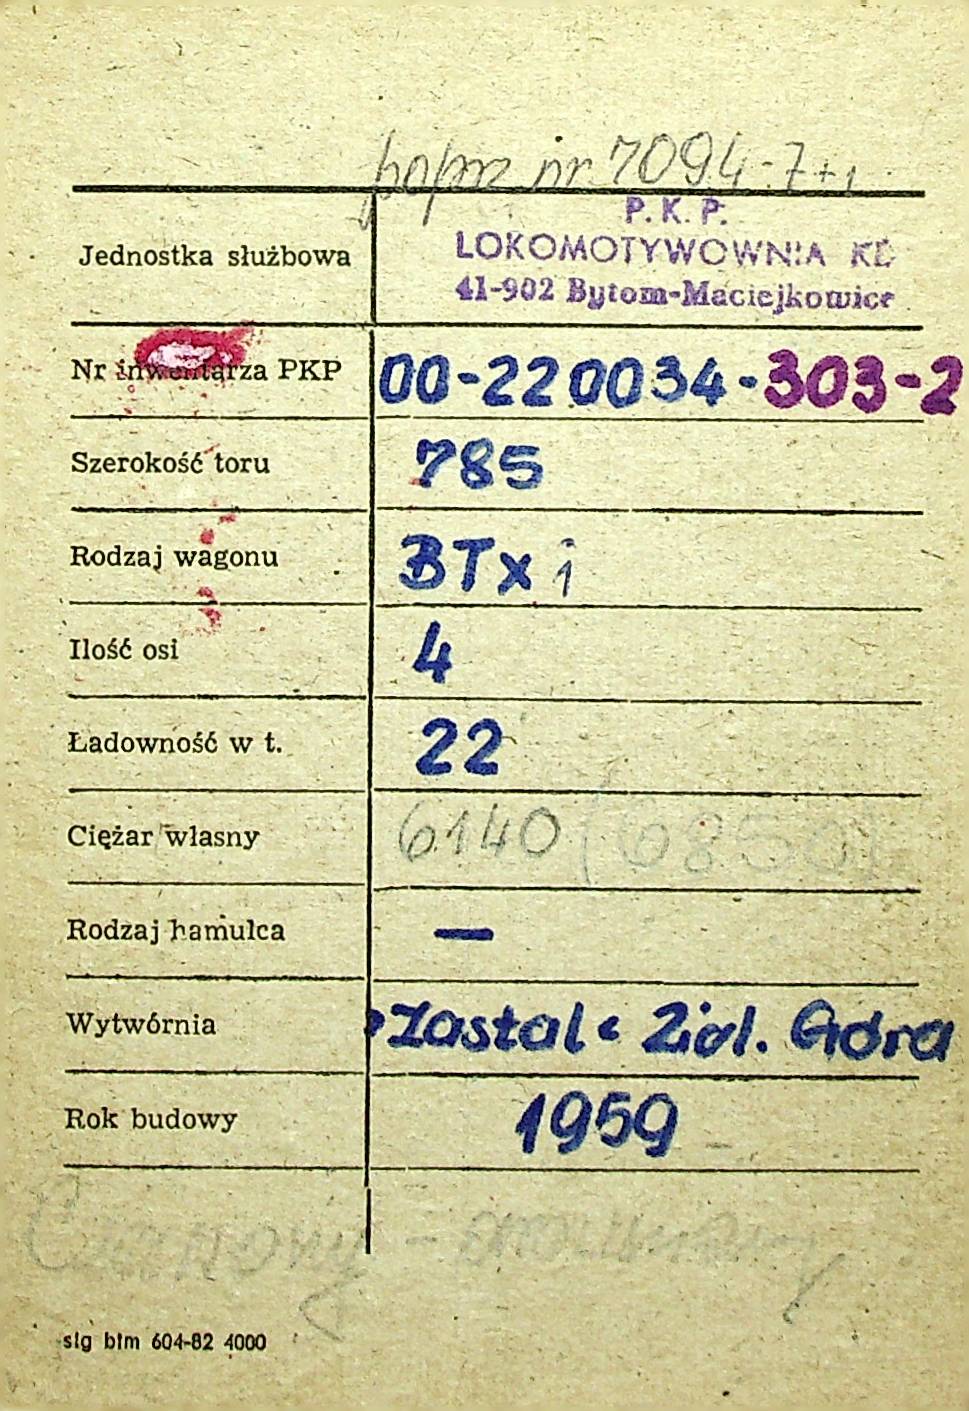 poprz nr 7094-7+1
P. K. P.
Jednostka służbowa LOKOMOTYWOWNIA KD
41-902 Bytom-Maciejkowice
Nr inwentarza PKP 00-220034-303-2
Szerokość toru 785
Rodzaj wagonu BTxi
Ilość osi 4
Ładowność w t. 22
Ciężar własny 6140 (6850)
Rodzaj hamulca —
Wytwórnia "Zastal" Ziel. Góra
Rok budowy 1959
Czerwony -
slg btm 604-82 4000